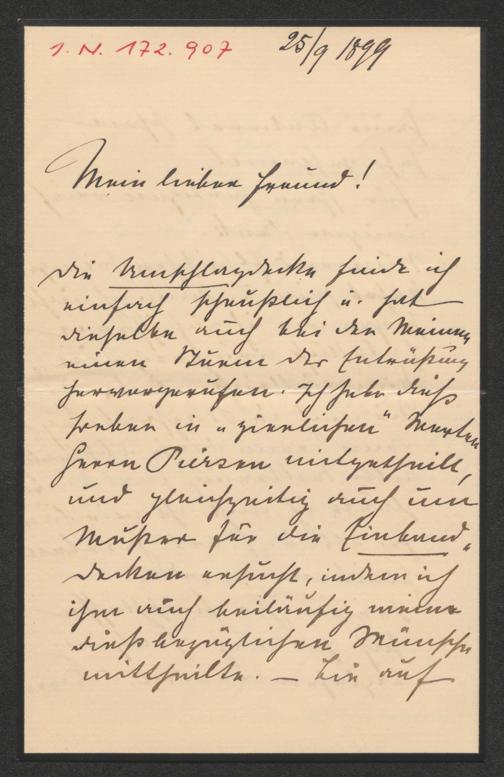 I. N. 172.907
25/9 1899
Mein lieber Freund!
Die Umschlagdecke finde ich
einfach scheußlich u. hat
dieselbe auch bei den Meinen
einen Sturm der Entrüstung
hervorgerufen. Ich habe dieß
soeben in „zierlichen“ Worten
Herrn Pierson mitgetheilt,
und gleichzeitig auch um
Muster für die Einband-
decken ersucht, indem ich
ihm auch beiläufig meine
dießbezüglichen Wünsche
mittheilte. — Bin auf